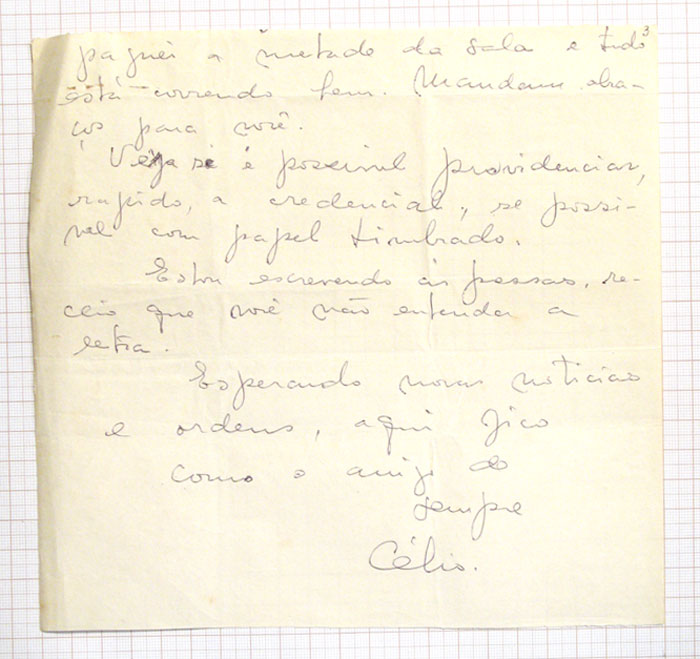 3
paguei a metade da sala e tudo
está correndo bem. Mandam abra-
ços para você.
Veja se é possivel providenciar,
rapido, a credencial, se possi-
vel com papel timbrado.
Estou escrevendo às pressas, re-
ceio que você não entenda a
letra.
Esperando novas noticias
e ordens, aqui fico
como o amigo de
sempre
Célio.